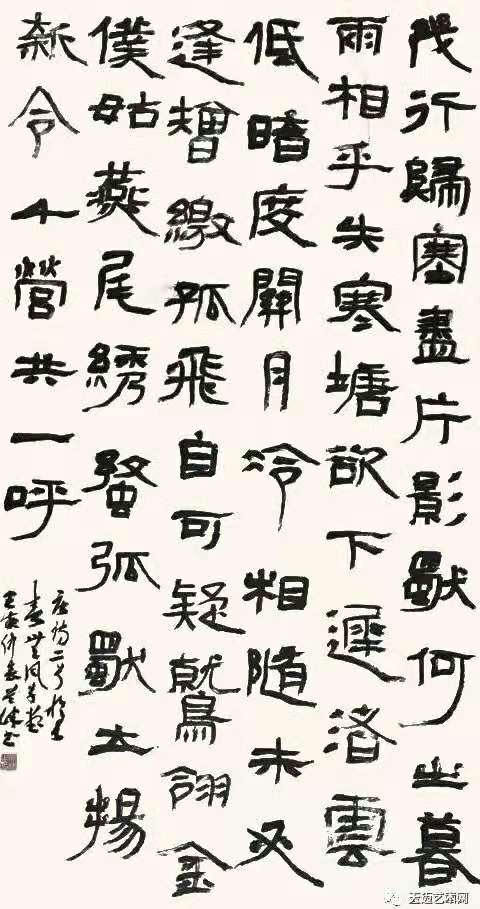 幾行歸塞盡片影獨何之暮
雨相乎失寒塘欲下遲渚雲
低暗度關月冷相隨未必
逢矰繳孤飛自可疑鷲翎金
僕姑燕尾繡蝥弧獨立揚
新令千營共一呼
唐詩二首於長
春
艺术网